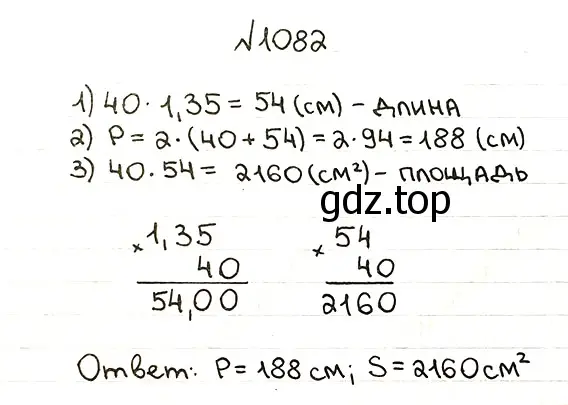 №1082
1) 40 · 1,35 = 54 (см) - длина
2) P = 2 · (40 + 54) = 2 · 94 = 188 (см)
3) 40 · 54 = 2160 (см²) - площадь
gdz.top
× 1,35 × 54
40 40
54,00 2160
Ответ: P = 188 см; S = 2160 см²